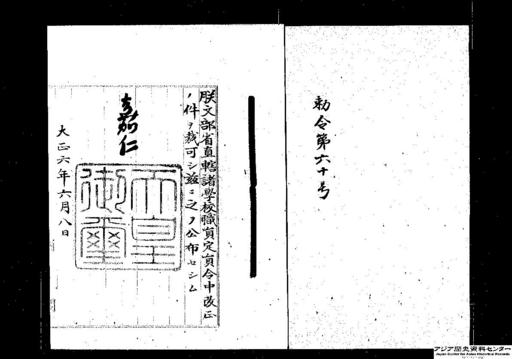 勅令第六十号
朕文部省直轄諸學校職員定員令中改正
ノ件ヲ裁可シ茲ニ之ヲ公布セシム
嘉仁
天皇御璽
大正六年六月八日
アジア歴史資料センター
Japan Center for Asian Historical Records